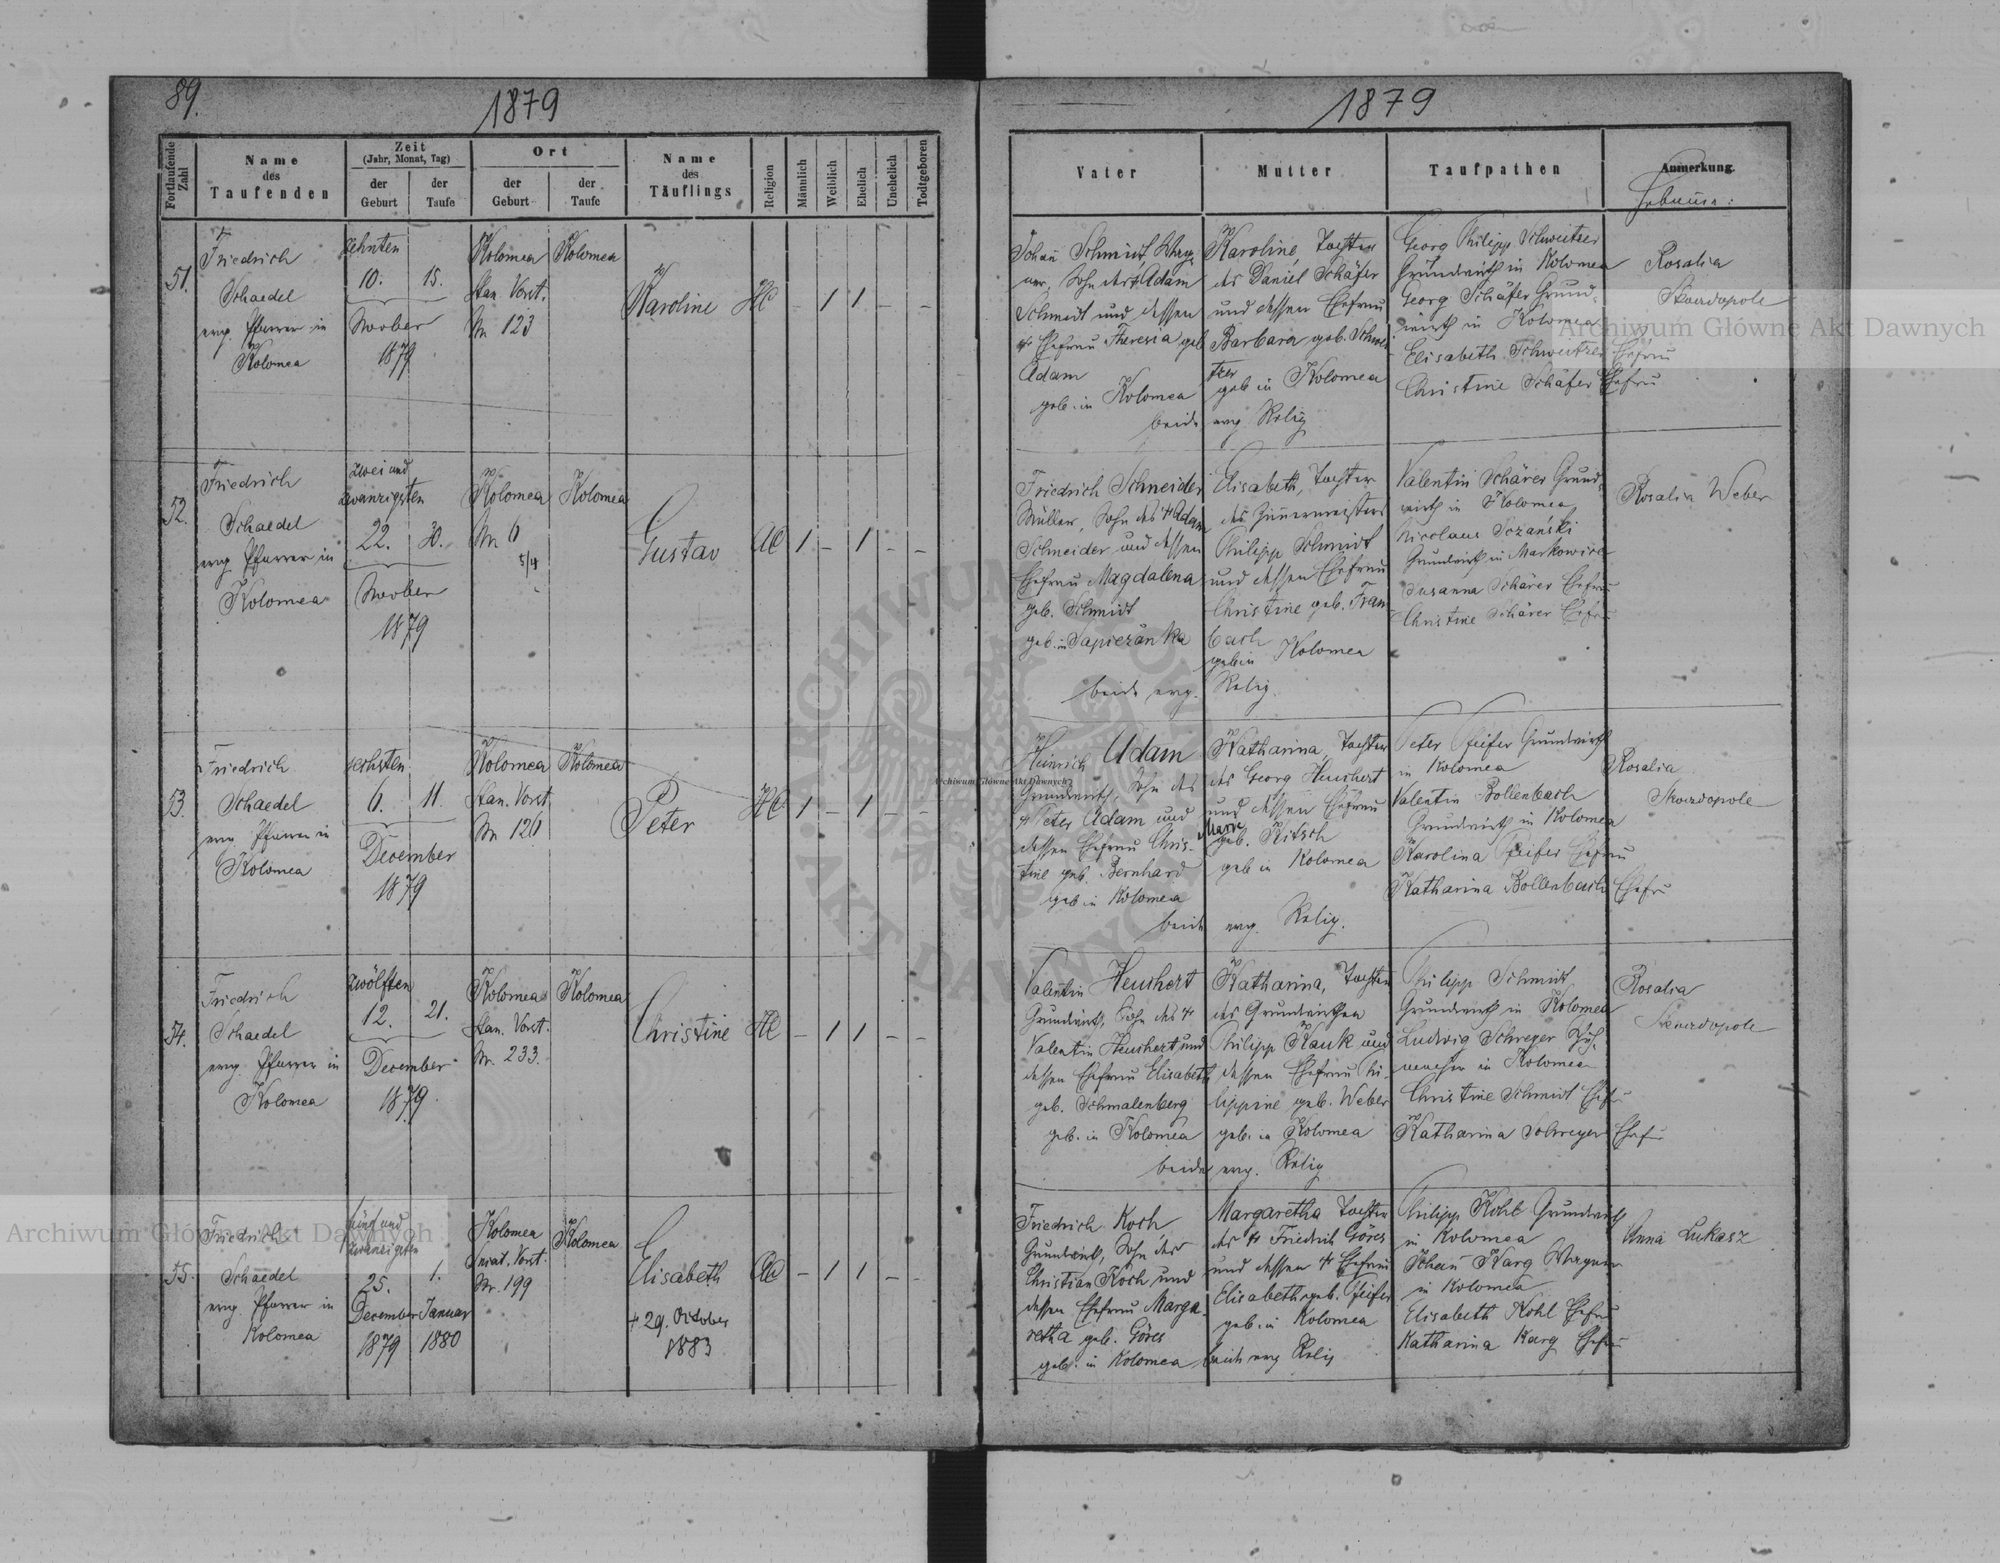 89.
1879
1879
Fortlaufende Zahl
Name des Taufenden
Zeit
(Jahr, Monat, Tag)
der Geburt
der Taufe
Ort
der Geburt
der Taufe
Name des Täuflings
Religion
Männlich
Weiblich
Ehelich
Unehelich
Todtgeboren
Vater
Mutter
Taufpathen
Anmerkung.
51.
Friedrich
Schaedel
evng. Pfarrer in
Kolomea
zehnten
10. 15.
Novber
1879
Kolomea
Stan. Vorst.
Nr. 123
Kolomea
Karoline
HC
– 1 1 – –
Schmidt
Sohn des † Adam
Schmidt und dessen
† Ehefrau Theresia geb
Adam
geb. in Kolomea
beide
Karoline, Tochter
des Daniel Schäfer
und dessen Ehefrau
Barbara geb. Schwei
tzer
geb in Kolomea
evg. Relig
Georg Philipp Schweitzer
Grundwirth in Kolomea
Georg Schäfer Grund-
wirth in Kolomea
Elisabeth Schweitzer Ehefrau
Christine Schäfer Ehefrau
Rosalia
Skowdopole
52.
Friedrich
Schaedel
evng. Pfarrer in
Kolomea
zwei und
zwanzigsten
22. 30.
Novber
1879
Kolomea
Nr. 6
5/4
Kolomea
Gustav
AC
1 – 1 – –
Friedrich Schneider
Müller, Sohn des † Adam
Schneider und dessen
Ehefrau Magdalena
geb. Schmidt
geb. in Sapiezanka
beide evg.
Elisabeth, Tochter
des Zimmermeisters
Philipp Schmidt
und dessen Ehefrau
Christine geb. Fran
bach
geb in Kolomea
Relig.
Valentin Schärer Grund-
wirth in Kolomea
Nicolaus Sozański
Grundwirth in Markowice
Susanna Schärer Ehefrau
Christine Schärer Ehefrau
Rosalia Weber
53.
Friedrich
Schaedel
evng. Pfarrer in
Kolomea
sechsten
6. 11.
December
1879
Kolomea
Stan. Vorst
Nr. 126
Kolomea
Peter
HC
1 – 1 – –
Heinrich Adam
Grundwirth, Sohn des
† Peter Adam und
dessen Ehefrau Chris-
tine geb. Bernhard
geb in Kolomea
beide
Katharina, Tochter
des Georg Heuchert
und dessen Ehefrau
geb. Kitsch
geb in Kolomea
evg. Relig.
Peter Pfeifer Grundwirth
in Kolomea
Valentin Bollenbach
Grundwirth in Kolomea
Karolina Pfeifer Ehefrau
Katharina Bollenbach Ehefr
Rosalia
Skowdopole
54.
Friedrich
Schaedel
evng. Pfarrer in
Kolomea
zwölften
12. 21.
December
1879
Kolomea
Stan. Vorst.
Nr. 233.
Kolomea
Christine
HC
– 1 1 – –
Valentin Heuchert
Grundwirth, Sohn des †
Valentin Heuchert und
dessen Ehefrau Elisabeth
geb. Schmalenberg
geb. in Kolomea
beide
Katharina, Tochter
des Grundwirthen
Philipp Kauk und
dessen Ehefrau Phi-
lippine geb. Weber
geb. in Kolomea
evg. Relig
Philipp Schmidt
Grundwirth in Kolomea
Ludwig Schreyer Schuh-
macher in Kolomea
Christine Schmidt Ehefr
Katharina Schreyer Ehefr
Rosalia
Skowdopole
55.
Friedrich
Schaedel
evng. Pfarrer in
Kolomea
fünf und
zwanzigsten
25. 1.
December Januar
1879 1880
Kolomea
Sniat. Vorst.
Nr. 199
Kolomea
Elisabeth
† 29. October
1883
AC
– 1 1 – –
Friedrich Koch,
Grundwirth, Sohn des
Christian Koch und
dessen Ehefrau Marga
retha geb. Göres
geb. in Kolomea
Margaretha Tochter
des † Friedrich Göres
und dessen † Ehefrau
Elisabeth geb. Pfeifer
geb. in Kolomea
beide evg Relig
Philipp Kohl Grundwirth
in Kolomea
Johan Karg Wagner
in Kolomea
Elisabeth Kohl Ehefrau
Katharina Karg Ehefrau
Anna Lukasz
Archiwum Główne Akt Dawnych
Archiwum Główne Akt Dawnych
Archiwum Główne Akt Dawnych